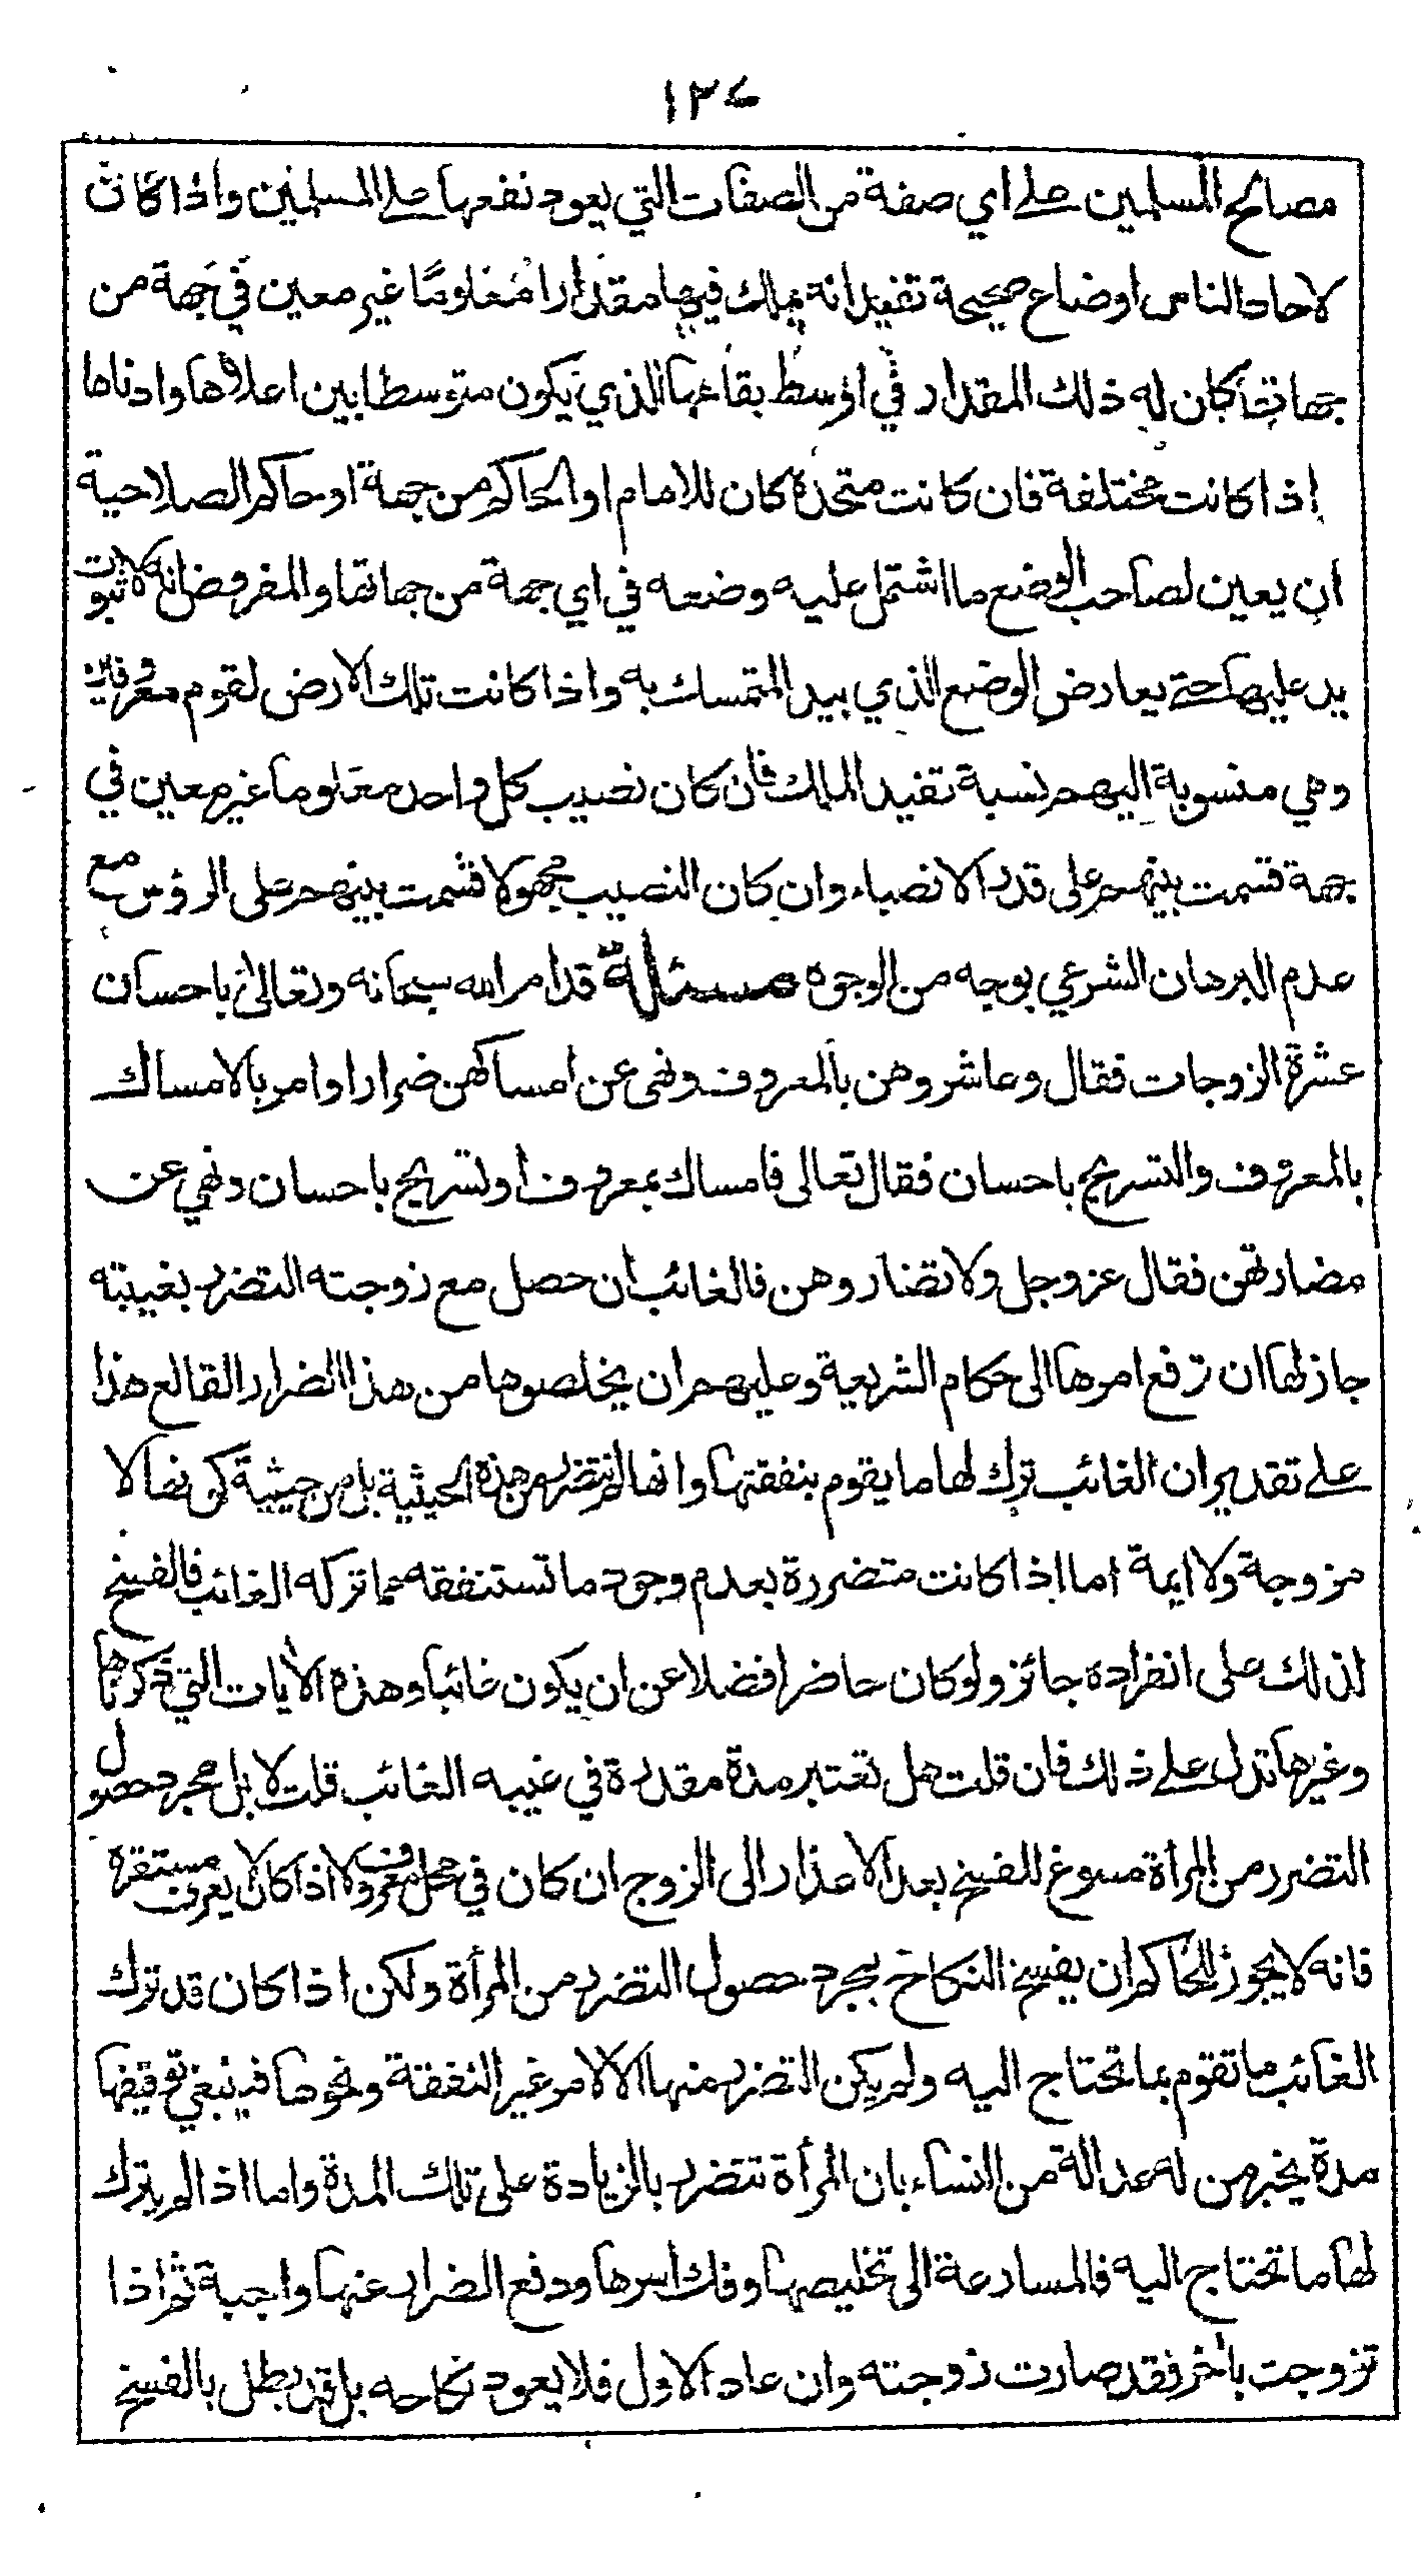 ١٣٤
مصالح المسلمين على اي صفة من الصفات التي يعود نفعها على المسلمين واذا كانت
لاحاد الناس اوضاع صحيحة تفيد انه يملك فيها مقدارا معلوما غير معين في جهة من
جهاتها كان له ذلك المقدار في اوسط بقاعها الذي يكون متوسطا بين اعلاها وادناها
إذا كانت مختلفة فان كانت متحدة كان للامام او الحاكم من جهة او حاكم الصلاحية
ان يعين لصاحب الوضع ما اشتمل عليه وضعه في اي جهة من جهاتها والمفروض انه لا ثبوت
يد عليها حتى يعارض الوضع الذي بيد المتمسك به واذا كانت تلك الارض لقوم معروفين
وهي منسوبة اليهم نسبة تفيد الملك فان كان نصيب كل واحد معلوما غير معين في
جهة قسمت بينهم على قدر الانصباء وان كان النصيب مجهولا قسمت بينهم على الرؤس مع
عدم البرهان الشرعي بوجه من الوجوه مسئلة قد امر الله سبحانه وتعالى باحسان
عشرة الزوجات فقال وعاشروهن بالمعروف ونهى عن امساكهن ضرارا وامر بالامساك
بالمعروف والتسريح باحسان فقال تعالى فامساك بمعروف او تسريح باحسان ونهي عن
مضارتهن فقال عز وجل ولا تضاروهن فالغائب ان حصل مع زوجته التضرر بغيبته
جاز لها ان ترفع امرها الى حكام الشريعة وعليهم ان يخلصوها من هذا الضرار القالع هذا
على تقدير ان الغائب ترك لها ما يقوم بنفقتها وانها لم تتضرر من هذه الحيثية بل من حيثية كونها لا
مزوجة ولا ايمة اما إذا كانت متضررة بعدم وجود ما تستنفقه مما تركه الغائب فالفسخ
لذلك على انفراده جائز ولو كان حاضرا فضلا عن ان يكون غائبا وهذه الأيات التي ذكرناها
وغيرها تدل على ذلك فان قلت هل تعتبر مدة مقدرة في غيبه الغائب قلت لا بل مجرد حصول
التضرر من المرأة مسوغ للفسخ بعد الاعذار الى الزوج ان كان في محل معروف لا اذا كان لا يعرف مستقره
فانه لا يجوز للحاكم ان يفسخ النكاح بمجرد حصول التضرر من المرأة ولكن اذا كان قد ترك
الغائب ما تقوم بما تحتاج اليه ولم يكن التضرر منها الا لامر غير النفقة ونحوها فينبغي توقيفها
مدة يخبر من له عدالة من النساء بان المرأة تتضرر بالزيادة على تلك المدة واما اذا لم يترك
لها ما تحتاج اليه فالمسارعة الى تخليصها وفك اسرها ودفع الضرار عنها واجبة ثم اذا
تزوجت بأخر فقد صارت زوجته وان عاد الاول فلا يعود نكاحه بل قد بطل بالفسخ